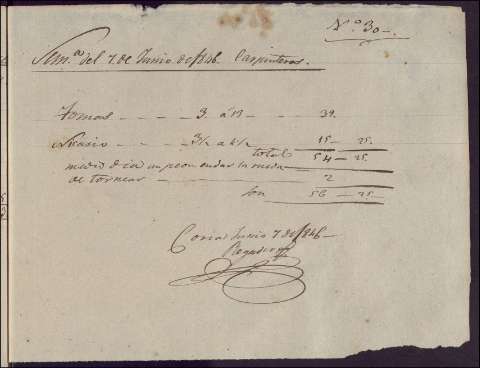 Nº 30
Semª del 7 de Junio de 1846. Carpinteros.
Tomas 3. á 13 39.
3½ a 4½ 15 - 25.
total 54 - 25.
medio dia un peon en dar la rueda
de tornear 2
Son 56 - 25
Coria Junio 7 de 1846